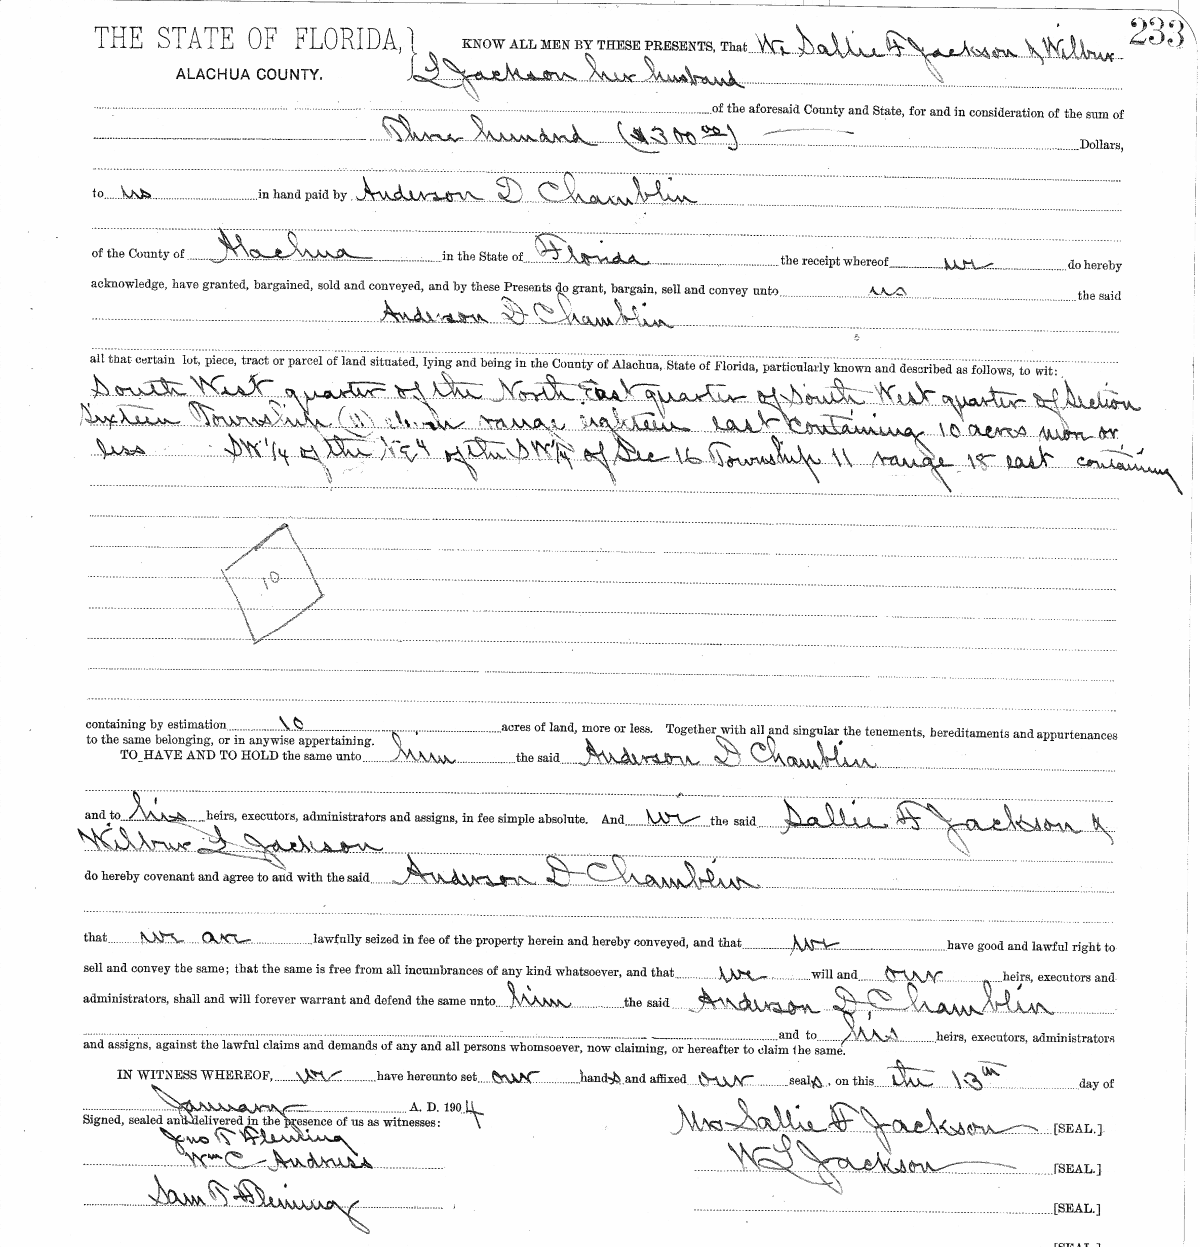 233
THE STATE OF FLORIDA, } KNOW ALL MEN BY THESE PRESENTS, That We Sallie F Jackson & Wilbur
ALACHUA COUNTY. L Jackson her husband
of the aforesaid County and State, for and in consideration of the sum of
Three hundred ($300 00) Dollars,
to us in hand paid by Anderson D Chamblin
of the County of Alachua in the State of Florida the receipt whereof we do hereby
acknowledge, have granted, bargained, sold and conveyed, and by these Presents do grant, bargain, sell and convey unto us the said
Anderson D Chamblin
all that certain lot, piece, tract or parcel of land situated, lying and being in the County of Alachua, State of Florida, particularly known and described as follows, to wit:
South West quarter of the North East quarter of South West quarter of Section
Sixteen Township (11) eleven range eighteen east containing 10 acres more or
less SW 1/4 of the NE 4 of the SW 1/4 of Sec 16 Township 11 range 18 east containing
10
containing by estimation 10 acres of land, more or less. Together with all and singular the tenements, hereditaments and appurtenances
to the same belonging, or in anywise appertaining.
TO HAVE AND TO HOLD the same unto him the said Anderson D Chamblin
and to his heirs, executors, administrators and assigns, in fee simple absolute. And we the said Sallie F Jackson &
Wilbur L Jackson
do hereby covenant and agree to and with the said Anderson D Chamblin
that we are lawfully seized in fee of the property herein and hereby conveyed, and that we have good and lawful right to
sell and convey the same; that the same is free from all incumbrances of any kind whatsoever, and that we will and our heirs, executors and
administrators, shall and will forever warrant and defend the same unto him the said Anderson D Chamblin
and to his heirs, executors, administrators
and assigns, against the lawful claims and demands of any and all persons whomsoever, now claiming, or hereafter to claim the same.
IN WITNESS WHEREOF, we have hereunto set our hands and affixed our seals, on this the 13th day of
January A. D. 1904
Signed, sealed and delivered in the presence of us as witnesses:
Mrs Sallie F Jackson [SEAL.]
Jno T Fleming
Wm C Andruss W L Jackson [SEAL.]
Sam T Fleming [SEAL.]